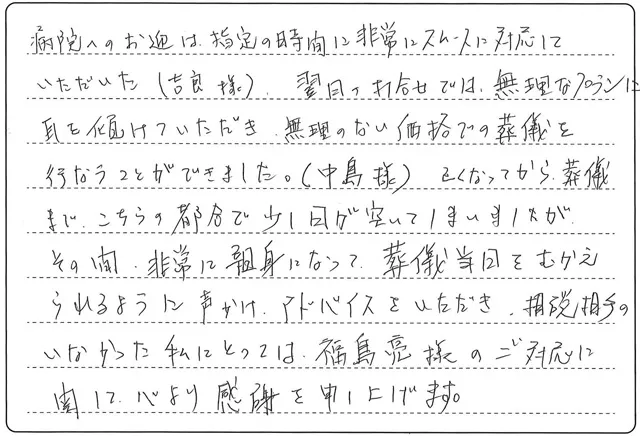 病院へのお迎は、指定の時間に非常にスムースに対応して
いただいた(吉良様)、翌日の打合せでは、無理なプランに
耳を傾けていただき、無理のない価格での葬儀を
行なうことができました。(中島様) 亡くなってから、葬儀
まで、こちらの都合で少し日が空いてしまいましたが、
その間、非常に親身になって、葬儀当日をむかえ
られるように声かけ、アドバイスをいただき、相談相手の
いなかった私にとっては、福島亮様のご対応に
関して、心より感謝を申し上げます。